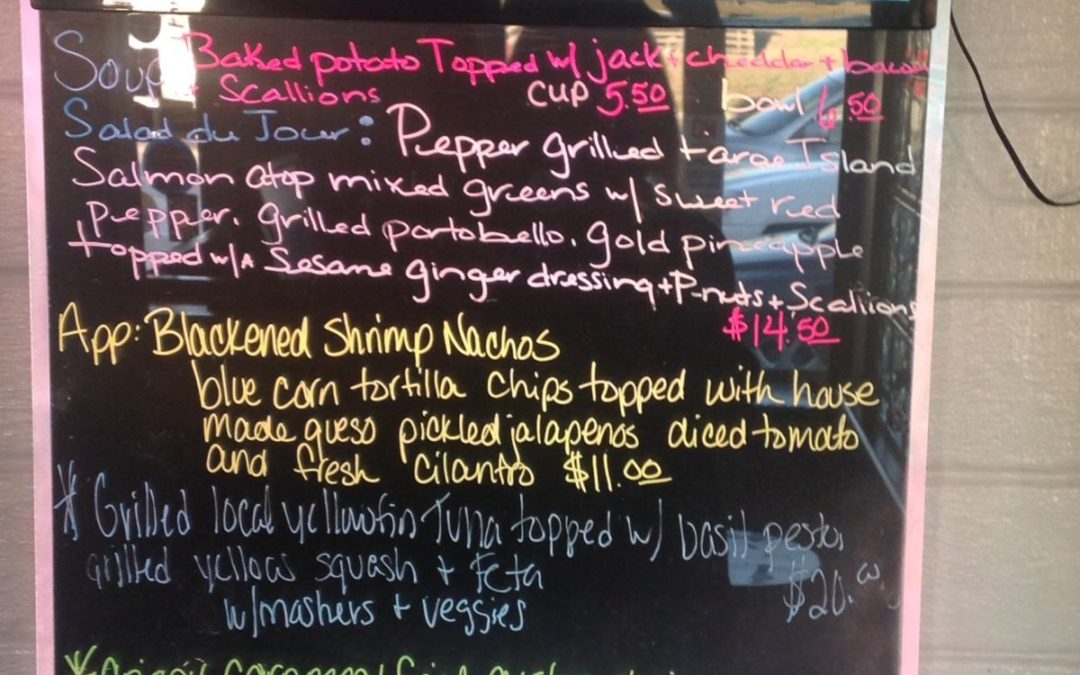 Soup Baked potato Topped w/ jack + cheddar + bacon
+ Scallions cup 5.50 bowl 6.50
Salad du Jour: Pepper grilled Farae Island
Salmon atop mixed greens w/ sweet red
pepper, grilled portobello, gold pineapple
topped w/ A Sesame ginger dressing + P-nuts + Scallions
$14.50
App: Blackened Shrimp Nachos
blue corn tortilla chips topped with house
made queso pickled jalapenos diced tomato
and fresh cilantro $11.00
* Grilled local yellowfin Tuna topped w/ basil pesto,
grilled yellow squash + Feta $20.00
w/ mashers + veggies